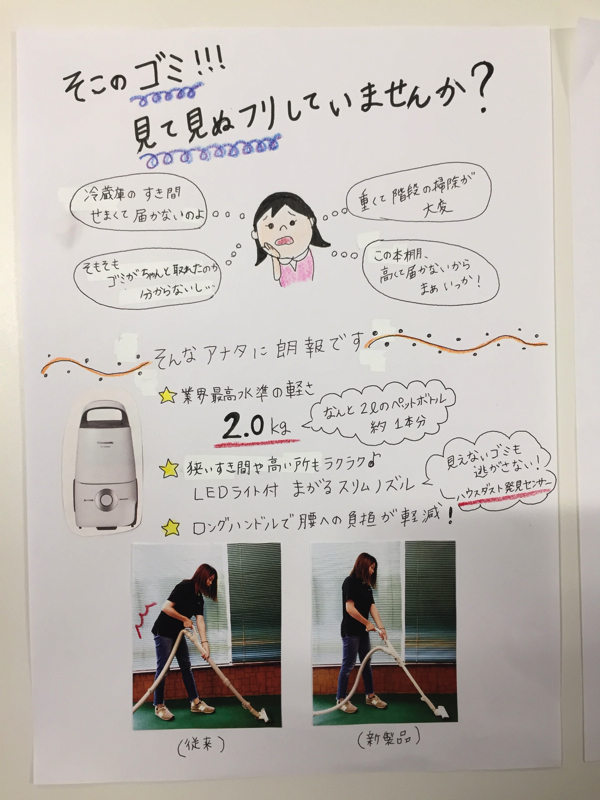 そこのゴミ!!!
見て見ぬフリしていませんか?
冷蔵庫の すき間
せまくて 届かないのよ
重くて 階段の掃除が
大変
そもそも
ゴミがちゃんと取れたのか
分からないし…
この本棚、
高くて届かないから
まぁいっか!
そんなアナタに朗報です
業界最高水準の軽さ
2.0kg
なんと2ℓのペットボトル
約1本分
狭いすき間や高い所もラクラク♪
LEDライト付 まがるスリムノズル
見えないゴミも
逃がさない!
ハウスダスト発見センサー
ロングハンドルで腰への負担が軽減!
(従来)
(新製品)